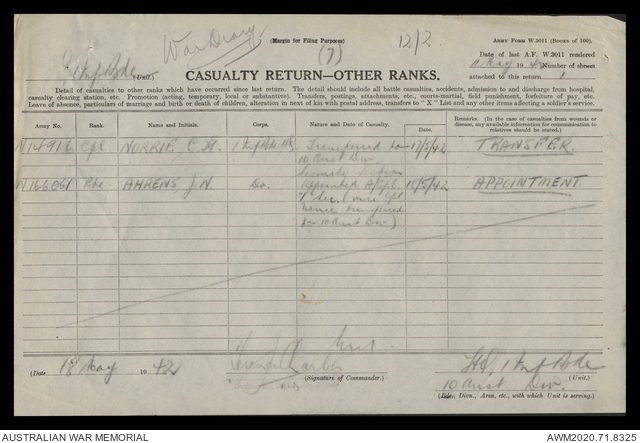 War Diary
(Margin for Filing Purposes)
(7)
12/2
ARMY FORM W.3011 (BOOKS OF 100).
1 Inf Bde (Unit)
CASUALTY RETURN—OTHER RANKS.
Date of last A.F. W.3011 rendered
11 May 1942 Number of sheets
attached to this return 1
Detail of casualties to other ranks which have occurred since last return. The detail should include all battle casualties, accidents, admission to and discharge from hospital,
casualty clearing station, etc. Promotion (acting, temporary, local or substantive). Transfers, postings, attachments, etc., courts-martial, field punishment, forfeiture of pay, etc.
Leave of absence, particulars of marriage and birth or death of children, alteration in next of kin with postal address, transfers to "X" List and any other items affecting a soldier's service.
Army No. Rank. Name and Initials. Corps. Nature and Date of Casualty. Date. Remarks. (In the case of casualties from wounds or disease, any available information for communication to relatives should be stated.)
Cpl NORRIE, C. 1 Inf Bde HQ Transferred to 17/5/42 TRANSFER
10 Aust Div.
Security
N166061 Pte AHRENS, J.N. Do. Appointed A/Cpl 18/5/42 APPOINTMENT
Cpl
Norrie transferred
to 10 Aust Div)
(Date 18 May 1942
(Signature of Commander.)
HQ, 1 Inf Bde (Unit.)
10 Aust Div.
(Bde., Divn., Area, etc., with which Unit is serving.)
AUSTRALIAN WAR MEMORIAL
AWM2020.71.8325